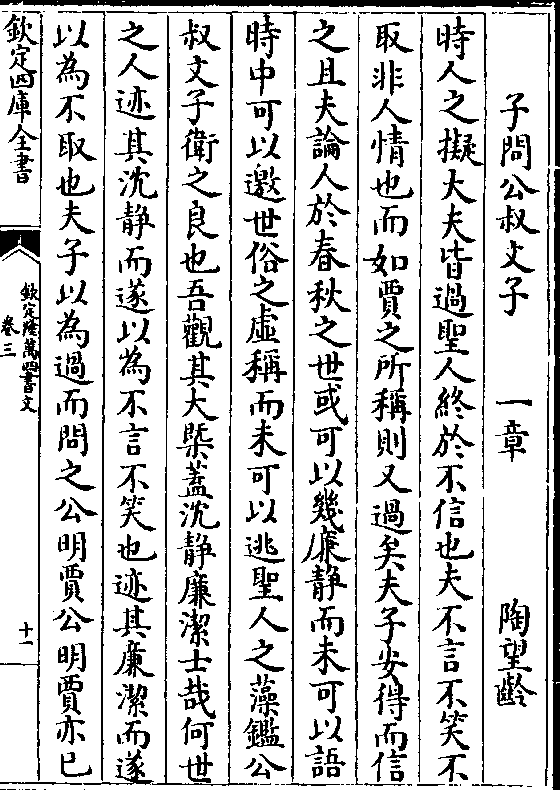 子問公叔文子　一章　陶望齡
時人之擬大夫皆過聖人終於不信也夫不言不笑不
取非人情也而如賈之所稱則又過矣夫子安得而信
之且夫論人於春秋之世或可以幾廉静而未可以語
時中可以邀世俗之虛稱而未可以逃聖人之藻鑑公
叔文子衛之良也吾觀其大槩蓋沈静廉潔士哉何世
之人迹其沈静而遂以為不言不笑也迹其廉潔而遂
以為不取也夫子以為過而問之公明賈公明賈亦已
欽定四庫全書
欽定隆萬四書文
卷三
十一